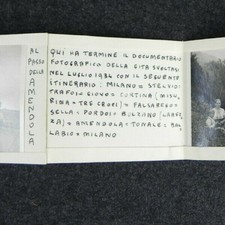 AL
PASSO
DELLA
MENDOLA
QUI HA TERMINE IL DOCUMENTARIO
FOTOGRAFICO DELLA GITA SVOLTASI
NEL LUGLIO 1934 CON IL SEGUENTE
ITINERARIO: MILANO = STELVIO =
TRAFOI = GIOVO = CORTINA (MISU_
RINA = TRE CROCI) = FALSAREGO =
SELLA = PORDOI = BOLZANO (
ZA) = AMENDOLA = TONALE =
LABIO = MILANO